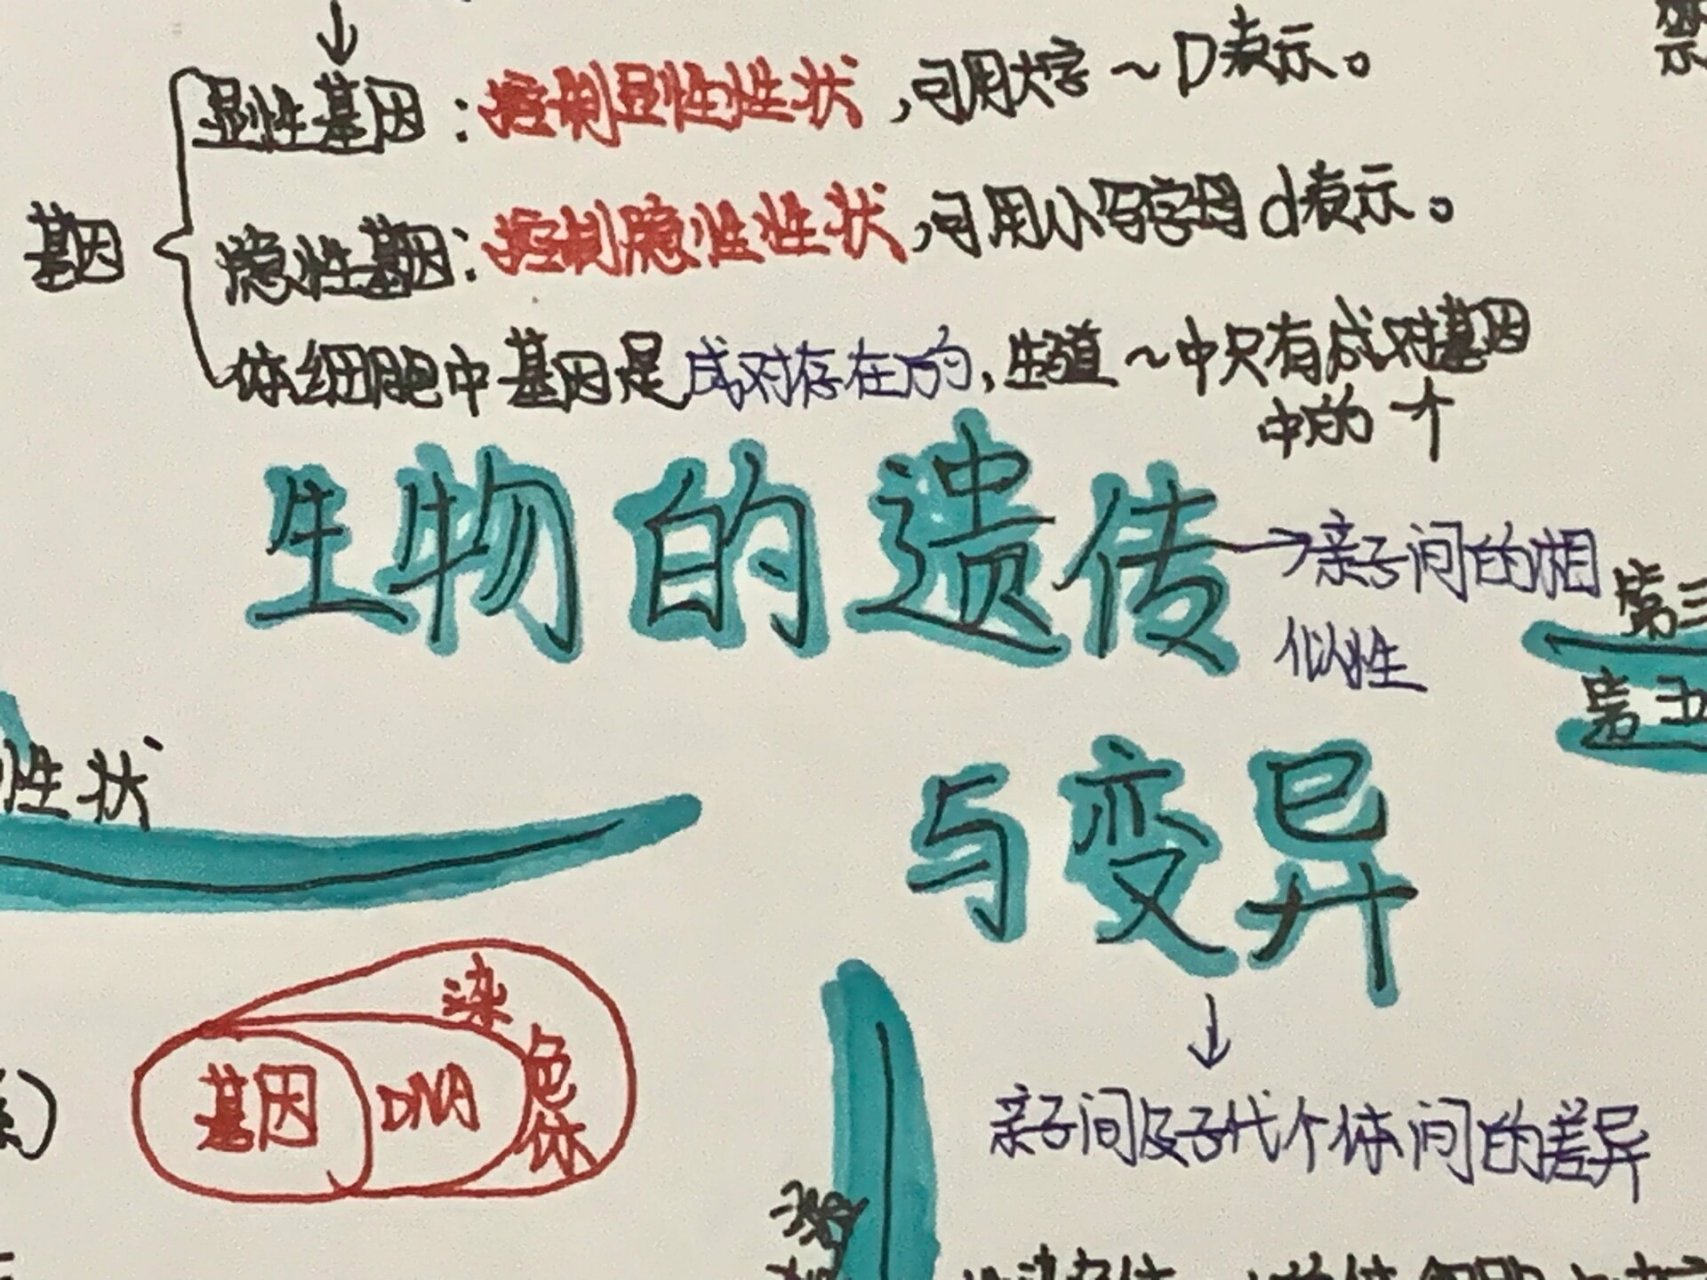 显性基因：控制显性性状，可用大字～D表示。
基因
隐性基因：控制隐性性状，可用小写字母d表示。
体细胞中基因是成对存在的，生殖～中只有成对基因
中的一个
生物的遗传→亲子间的相
似性
第三
第五
性状
与变异
染
色
体
基因 DNA
亲子间及子代个体间的差异